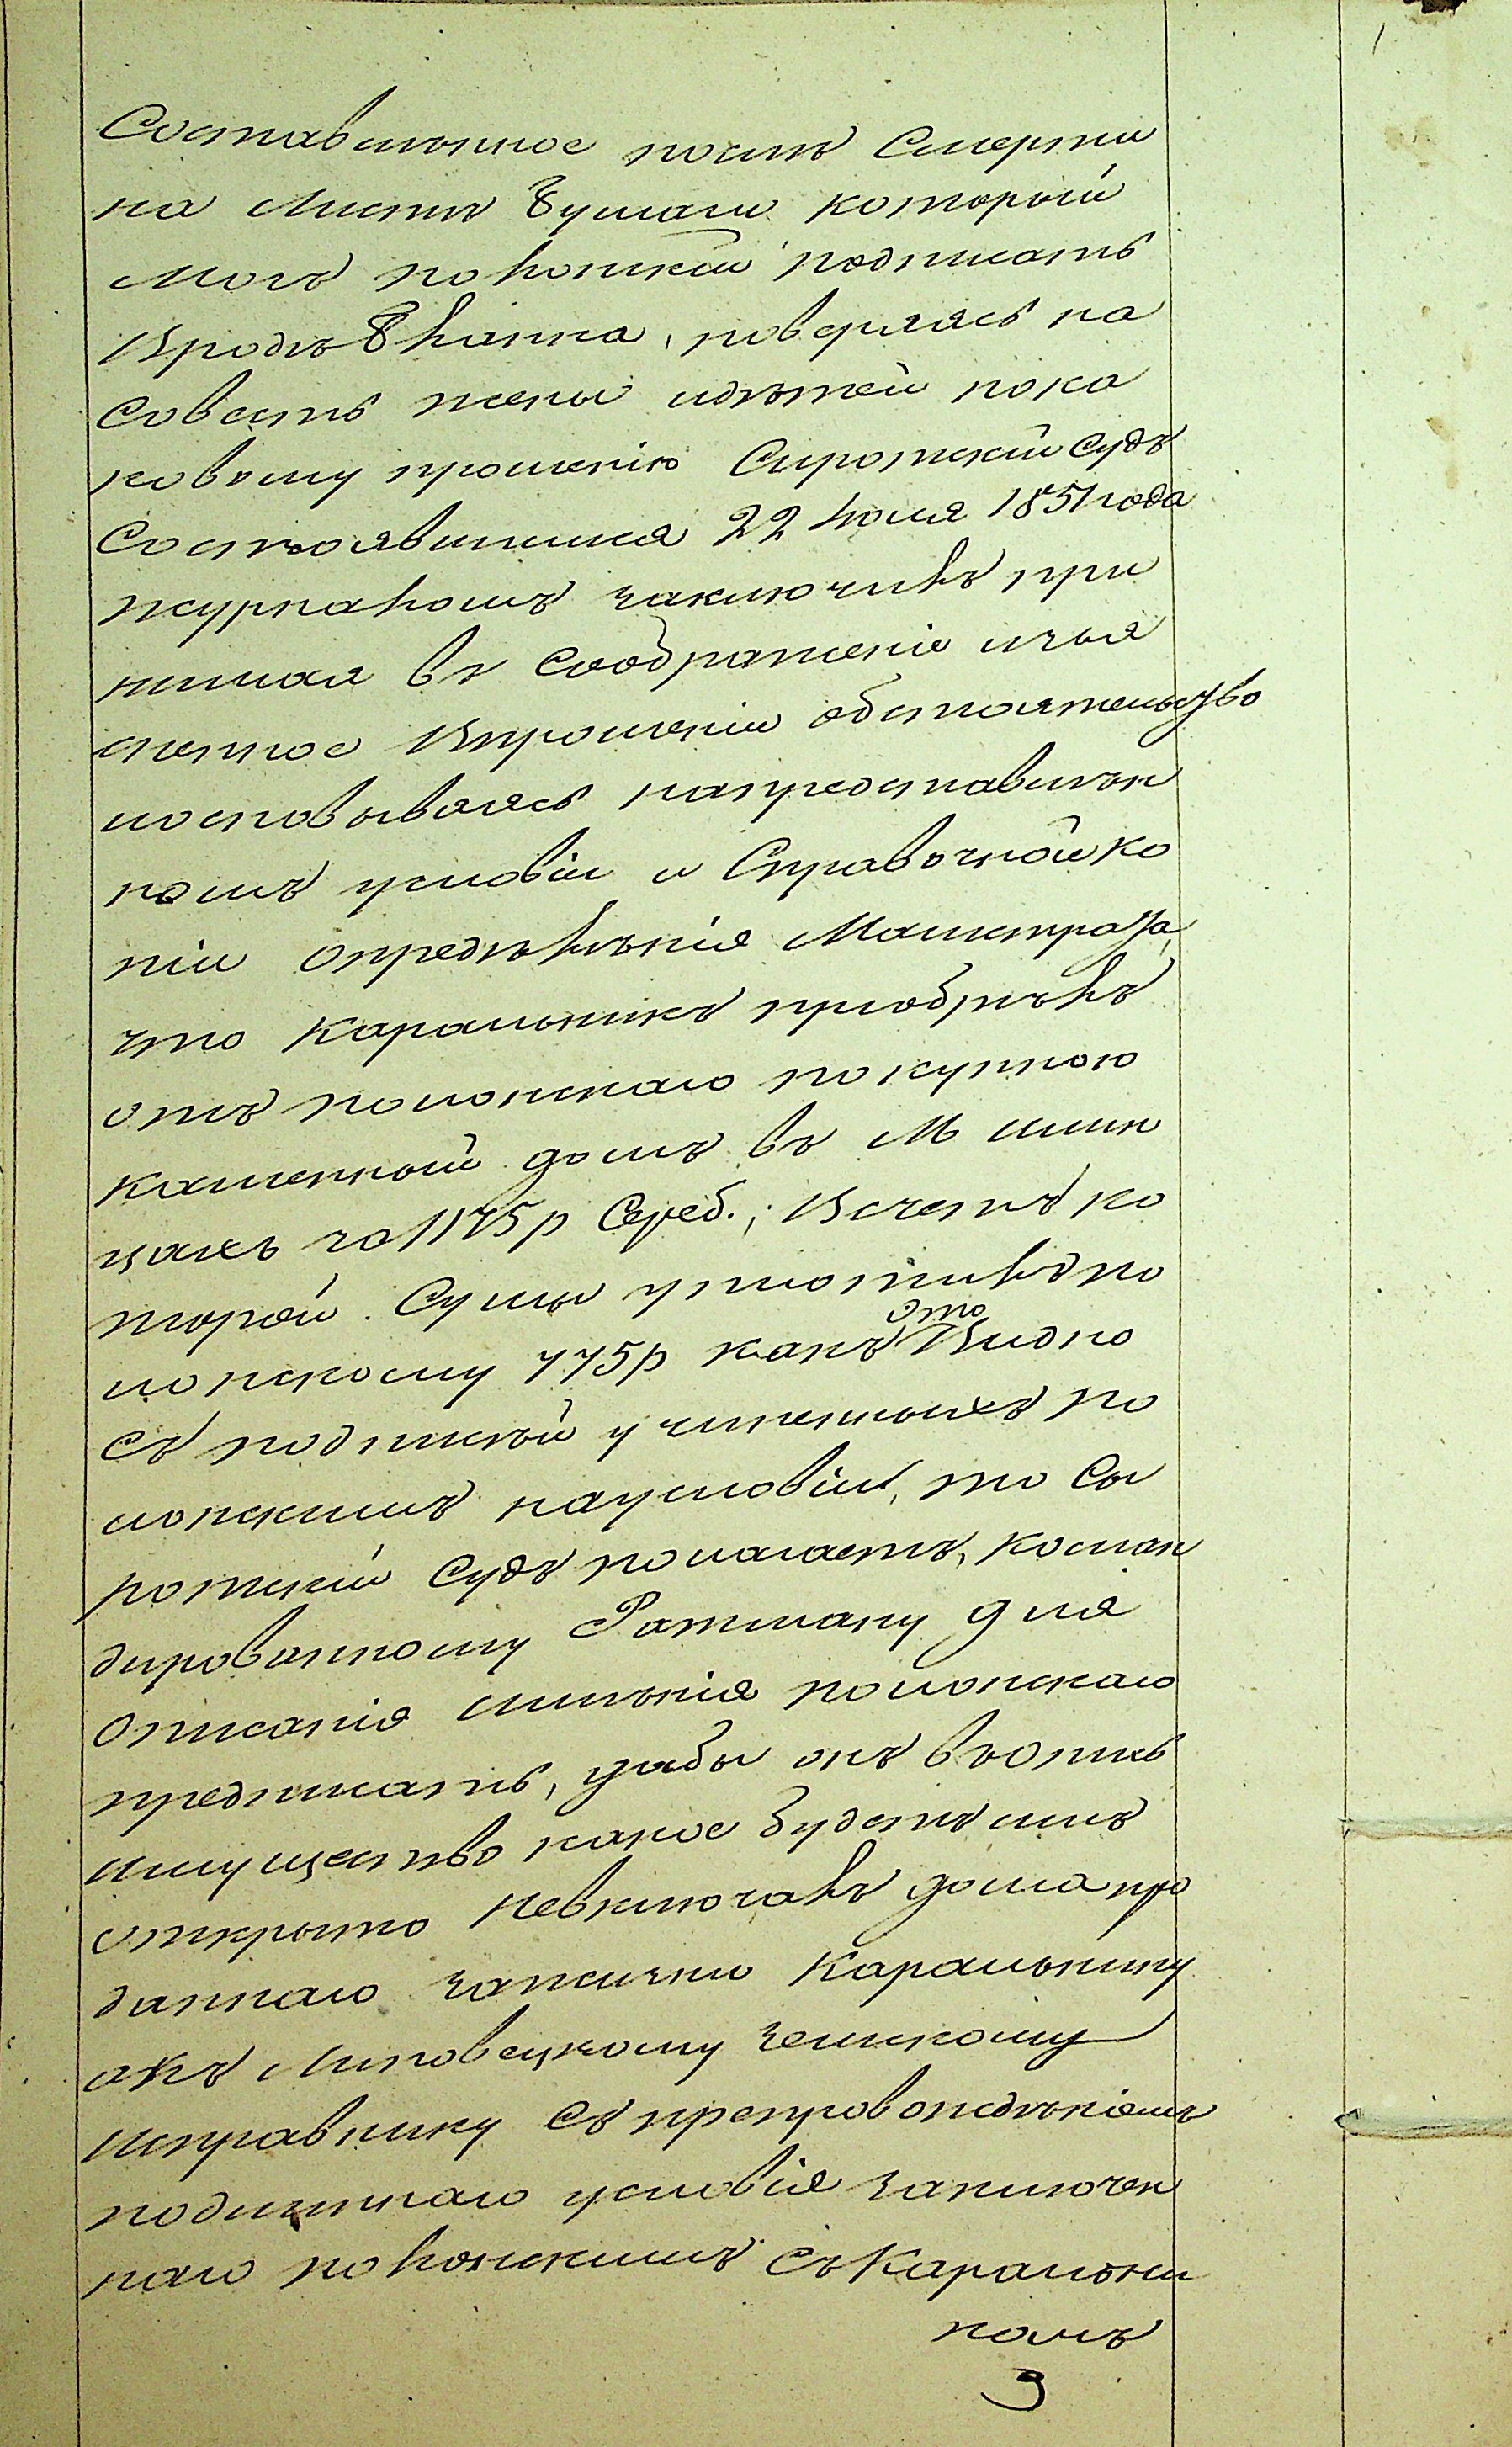 Составленное послѣ Смерти
на Листѣ бумаги который
могъ полонскій подписать
Вродѣ бланка, поверяясь на
Совесть жены идѣтей пока
ковому прошенію Сиротскій Судъ
Состоявшимся 22 Іюля 1851 года
журналомъ заключилъ при
нимая въ Соображеніе изъя
сненное Впрошеніи обстоятельство
иосновываясь напредставилен
номъ условіи и Справочной ко
піи опредѣленія Магистрата,
что Каральникъ приобрелъ
отъ полонскаго покупкою
каменный домъ въ М Лин
цахъ за 1175 р Сереб.; Всчетъ ко
торой Сумы уплотилъ по
лонскому 775 р какъ это Видно
съ подписей учиненныхъ по
лонскимъ наусловіи, то Си
ротскій Судъ полагаетъ, коман
дированному Ратману для
Описанія имѣнія полонскаго
предписать, дабы онъ въопись
имущество какое будетъ имъ
открыто невключалъ дома про
даннаго зажизни Каральнику
акъ Липовецкому Земскому
исправнику съ препровожденіемъ
подлиннаго условія заключен
наго полонскимъ съ Каральни
комъ
3